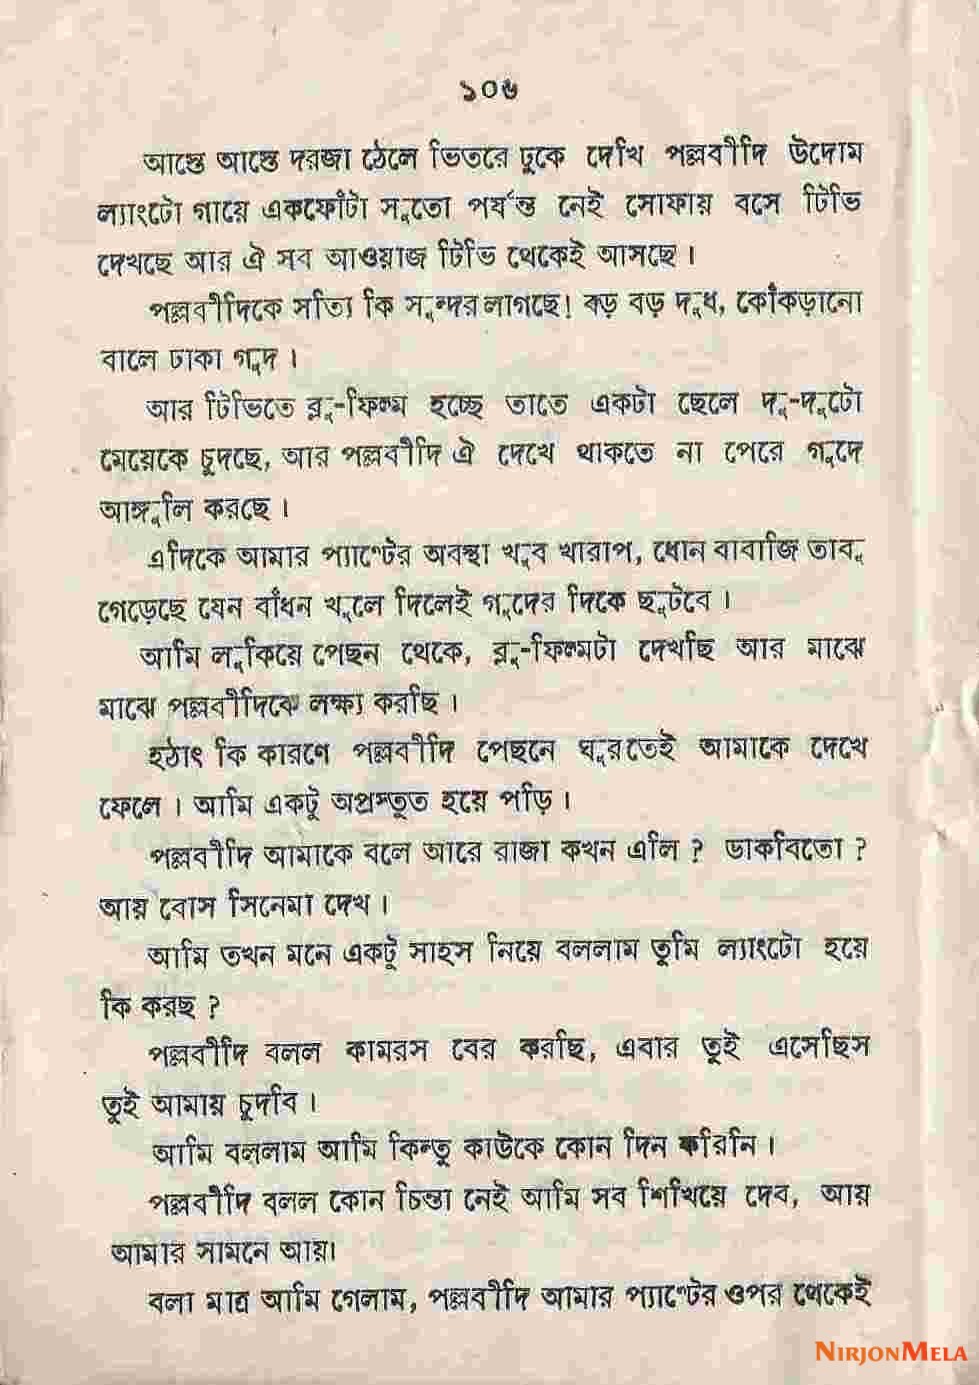 ১০৬
আস্তে আস্তে দরজা ঠেলে ভিতরে ঢুকে দেখি পল্লবীদি উদোম
ল্যাংটো গায়ে একফোঁটা সুতো পর্যন্ত নেই সোফায় বসে টিভি
দেখছে আর ঐ সব আওয়াজ টিভি থেকেই আসছে।
পল্লবীদিকে সত্যি কি সুন্দর লাগছে! বড় বড় দুধ, কোঁকড়ানো
বালে ঢাকা গুদ।
আর টিভিতে ব্লু-ফিল্ম হচ্ছে তাতে একটা ছেলে দু-দুটো
মেয়েকে চুদছে, আর পল্লবীদি ঐ দেখে থাকতে না পেরে গুদে
আঙ্গুলি করছে।
এদিকে আমার প্যাণ্টের অবস্থা খুব খারাপ, ধোন বাবাজি তাবু
গেড়েছে যেন বাঁধন খুলে দিলেই গুদের দিকে ছুটবে।
আমি লুকিয়ে পেছন থেকে, ব্লু-ফিল্মটা দেখছি আর মাঝে
মাঝে পল্লবীদিকে লক্ষ্য করছি।
হঠাৎ কি কারণে পল্লবীদি পেছনে ঘুরতেই আমাকে দেখে
ফেলে। আমি একটু অপ্রস্তুত হয়ে পড়ি।
পল্লবীদি আমাকে বলে আরে রাজা কখন এলি? ডাকবিতো?
আয় বোস সিনেমা দেখ।
আমি তখন মনে একটু সাহস নিয়ে বললাম তুমি ল্যাংটো হয়ে
কি করছ?
পল্লবীদি বলল কামরস বের করছি, এবার তুই এসেছিস
তুই আমায় চুদবি।
আমি বললাম আমি কিন্তু কাউকে কোন দিন করিনি।
পল্লবীদি বলল কোন চিন্তা নেই আমি সব শিখিয়ে দেব, আয়
আমার সামনে আয়।
বলা মাত্র আমি গেলাম, পল্লবীদি আমার প্যাণ্টের ওপর থেকেই
NIRJONMELA